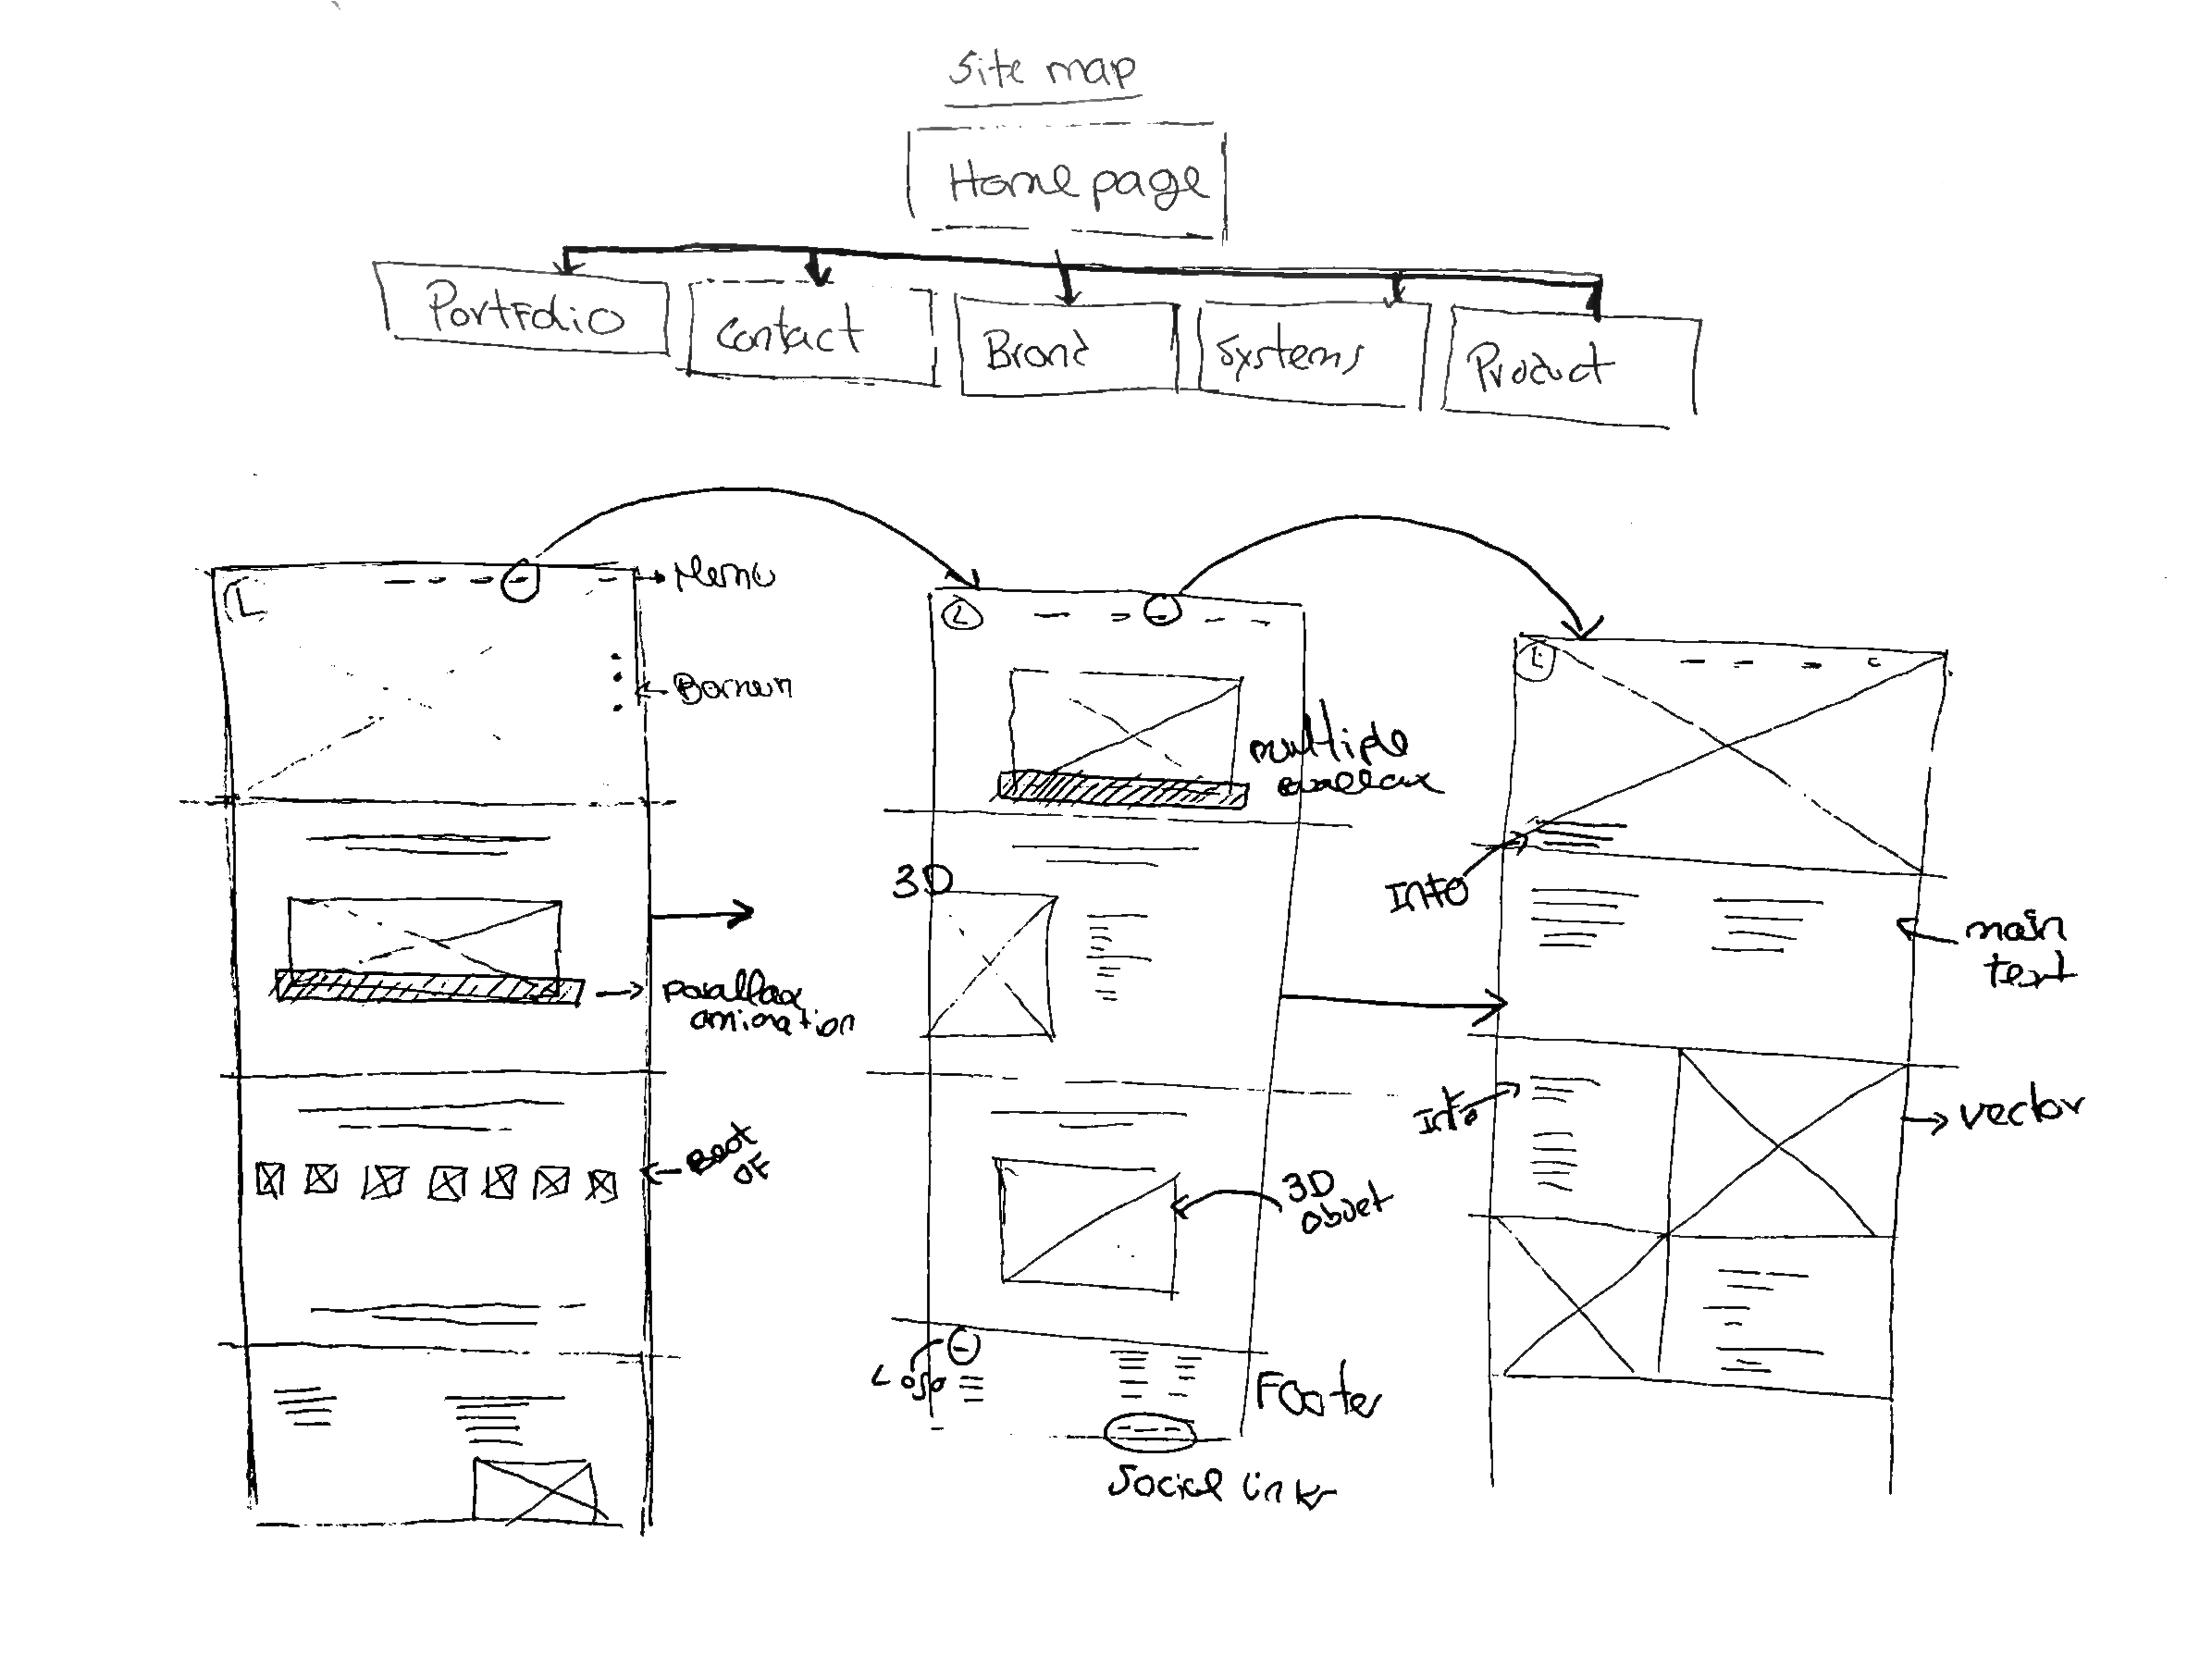 Site map
Home page
Portfolio
Contact
Brand
Systems
Product
L
Menu
parallax
animation
OF
L
multiple
3D
3D
Logo
Footer
Social links
L
Info
main
text
Info
vector